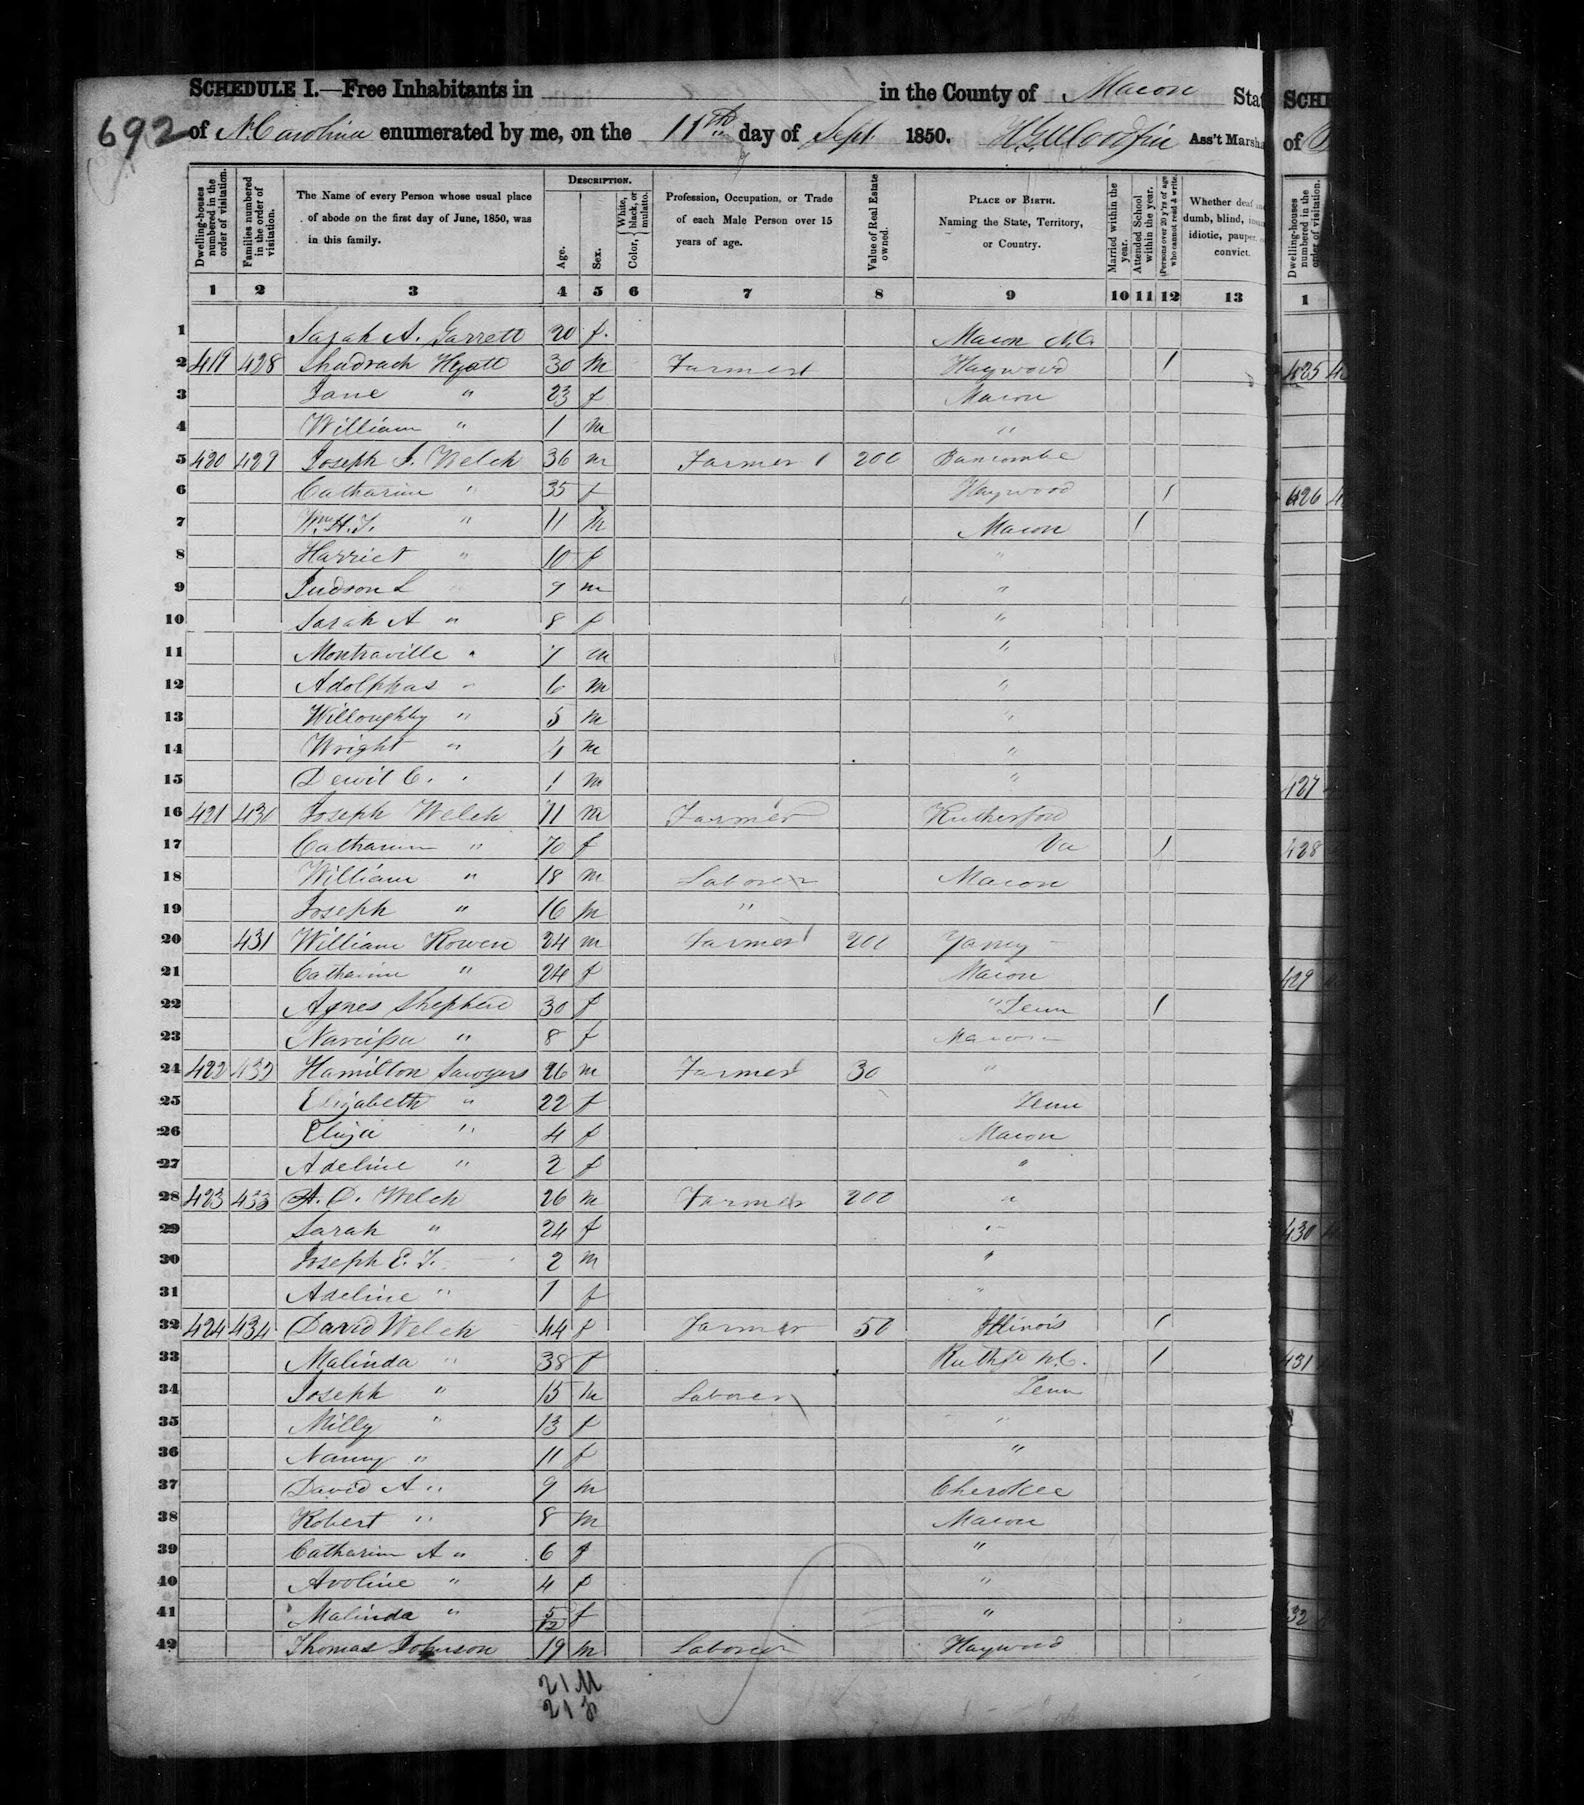 SCHEDULE I.—Free Inhabitants in in the County of Macon Stat
692 of N. Carolina enumerated by me, on the 11th day of Sept 1850. Ass't Marsha
Dwelling-houses numbered in the order of visitation.
Families numbered in the order of visitation.
The Name of every Person whose usual place of abode on the first day of June, 1850, was in this family.
DESCRIPTION.
Age.
Sex.
Color, { White, black, or mulatto.
Profession, Occupation, or Trade of each Male Person over 15 years of age.
Value of Real Estate owned.
PLACE OF BIRTH. Naming the State, Territory, or Country.
Married within the year.
Attended School within the year.
Persons over 20 y'rs of age who cannot read & write.
Whether deaf and dumb, blind, insane, idiotic, pauper, or convict.
1 2 3 4 5 6 7 8 9 10 11 12 13
1 Sarah A. Garrett 20 f. Macon N.C.
2 419 428 Shadrach Hyatt 30 m Farmer Haywood 1
3 Jane " 23 f Macon
4 William " 1 m "
5 420 429 Joseph J. Welch 36 m Farmer 200 Buncombe
6 Catharine " 35 f Haywood 1
7 Wm. H. T. " 11 m Macon 1
8 Harriet " 10 f "
9 Judson L " 9 m "
10 Sarah A " 8 f "
11 Montraville " 7 m "
12 Adolphas " 6 m "
13 Willoughby " 5 m "
14 Wright " 4 m "
15 Dewit C. " 1 m "
16 421 430 Joseph Welch 71 m Farmer Rutherford
17 Catharine " 70 f Va 1
18 William " 18 m Laborer Macon
19 Joseph " 16 m "
20 431 William Rowen 24 m Farmer 200 Yancy
21 Catharine " 24 f Macon
22 Agnes Shepherd 30 f " Tenn 1
23 Narcissa " 8 f Macon
24 422 432 Hamilton Sawyers 26 m Farmer 30 "
25 Elizabeth " 22 f Tenn
26 Eliza " 4 f Macon
27 Adeline " 2 f "
28 423 433 A. D. Welch 26 m Farmer 200 "
29 Sarah " 24 f "
30 Joseph E. T. " 2 m "
31 Adeline " 1 f "
32 424 434 David Welch 44 f Farmer 50 Illinois 1
33 Malinda " 38 f Ruthfd N.C. 1
34 Joseph " 15 m Laborer Tenn
35 Milly " 13 f "
36 Nancy " 11 f "
37 David A " 9 m Cherokee
38 Robert " 8 m Macon
39 Catharine A " 6 f "
40 Avoline " 4 f "
41 Malinda " 5/12 f "
42 Thomas Johnson 19 m Laborer Haywood
21 M
21 f
SCHE
of
Dwelling-houses numbered in the order of visitation.
1
425
426
427
428
429
430
431
432